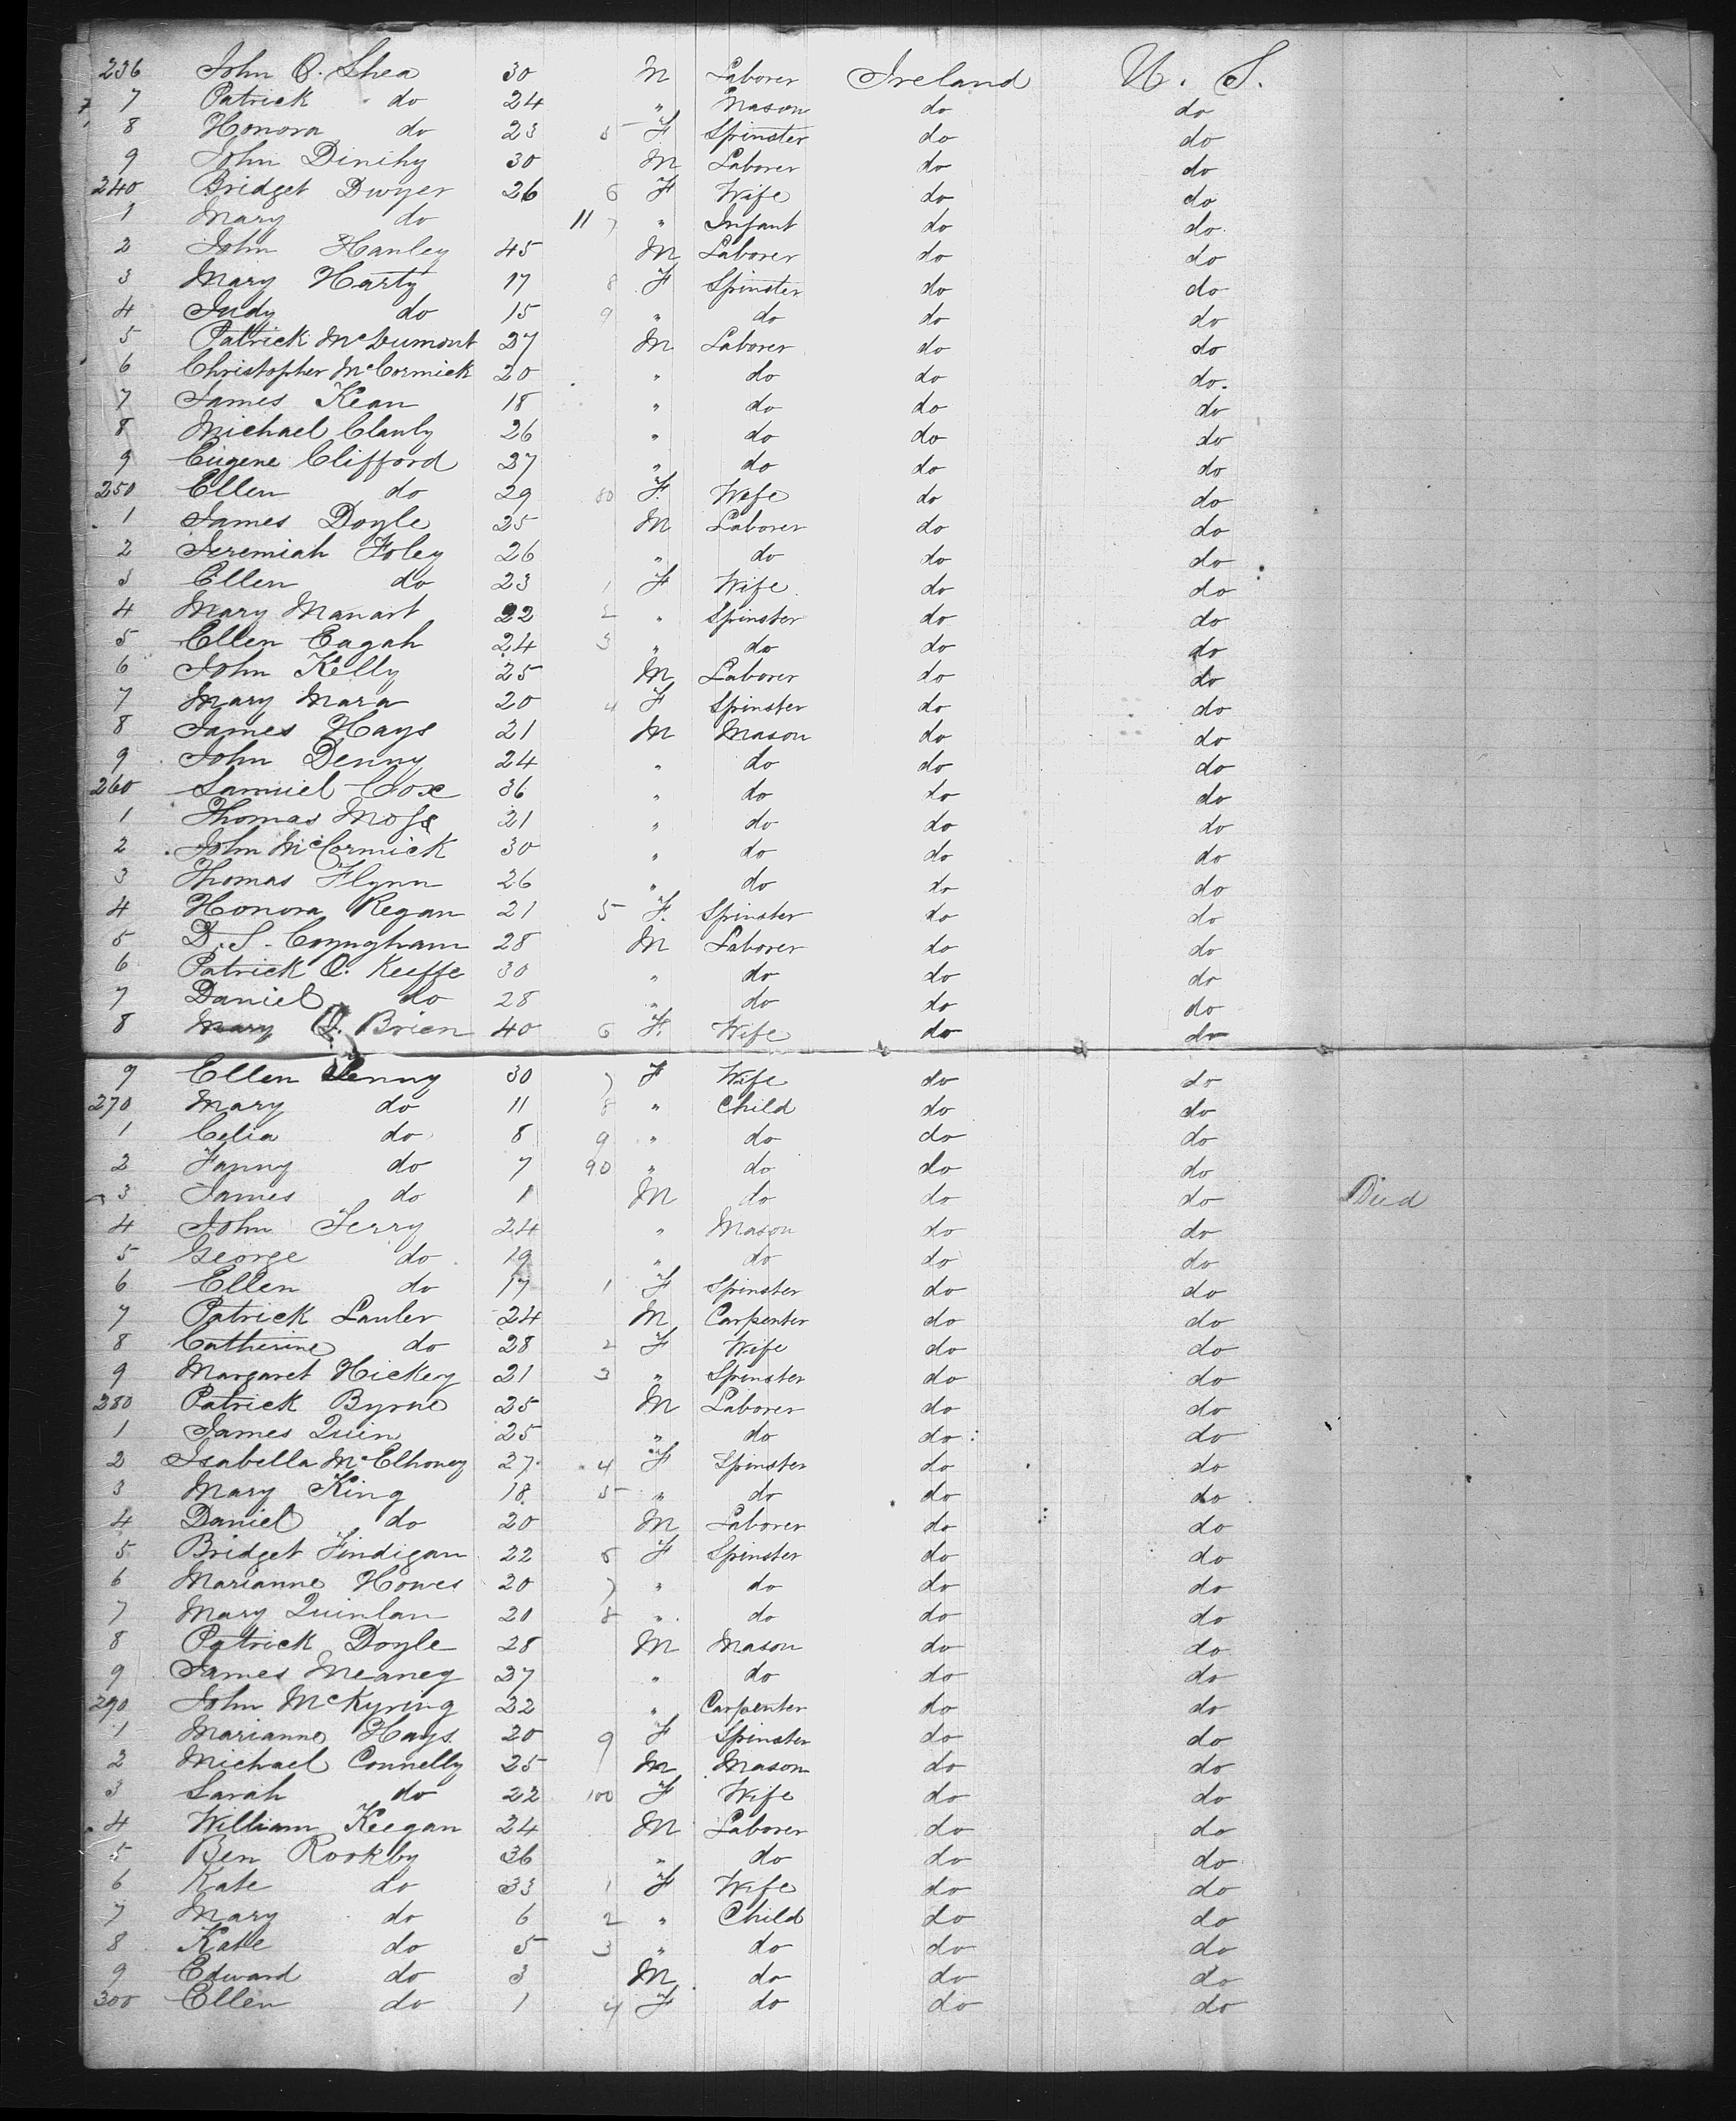 236 John O. Shea 30 M Laborer Ireland U. S.
7 Patrick do 24 " Mason do do
8 Honora do 23 5 F Spinster do do
9 John Dinihy 30 M Laborer do do
240 Bridget Dwyer 26 6 F Wife do do
1 Mary do 11 7 " Infant do do
2 John Hanley 45 M Laborer do do
3 Mary Harty 17 8 F Spinster do do
4 Judy do 15 9 " do do do
5 Patrick McDumont 27 M Laborer do do
6 Christopher McCormick 20 " do do do
7 James Kean 18 " do do do
8 Michael Clanly 26 " do do do
9 Eugene Clifford 27 " do do do
250 Ellen do 29 80 F. Wife do do
1 James Doyle 25 M Laborer do do
2 Jeremiah Foley 26 " do do do
3 Ellen do 23 1 F Wife do do
4 Mary Manart 22 2 " Spinster do do
5 Ellen Eagah 24 3 " do do do
6 John Kelly 25 M Laborer do do
7 Mary Mara 20 4 F Spinster do do
8 James Hays 21 M Mason do do
9 John Denny 24 " do do do
260 Samuel Cox 36 " do do do
1 Thomas Moss 21 " do do do
2 John McCormick 30 " do do do
3 Thomas Flynn 26 " do do do
4 Honora Regan 21 5 F. Spinster do do
5 D. S. Coyngham 28 M Laborer do do
6 Patrick O. Keeffe 30 " do do do
7 Daniel do 28 " do do do
8 Mary O. Brien 40 6 F. Wife do do
9 Ellen Penny 30 7 F Wife do do
270 Mary do 11 8 " Child do do
1 Celia do 8 9 " do do do
2 Fanny do 7 90 " do do do
3 James do 1 M do do do Died
4 John Terry 24 " Mason do do
5 George do 19 " do do do
6 Ellen do 17 1 F Spinster do do
7 Patrick Lauler 24 M Carpenter do do
8 Catherine do 28 2 F Wife do do
9 Margaret Hickey 21 3 " Spinster do do
280 Patrick Byrne 25 M Laborer do do
1 James Quin 25 " do do do
2 Isabella McElhoney 27 4 F Spinster do do
3 Mary King 18 5 " do do do
4 Daniel do 20 M Laborer do do
5 Bridget Findigan 22 6 F Spinster do do
6 Marianne Howes 20 7 " do do do
7 Mary Quinlan 20 8 " do do do
8 Patrick Doyle 28 M Mason do do
9 James Meaney 27 " do do do
290 John McKyring 22 " Carpenter do do
1 Marianne Hays 20 9 F Spinster do do
2 Michael Connelly 25 M Mason do do
3 Sarah do 22 100 F Wife do do
4 William Keegan 24 M Laborer do do
5 Ben Rookby 36 " do do do
6 Kate do 33 1 F Wife do do
7 Mary do 6 2 " Child do do
8 Kate do 5 3 " do do do
9 Edward do 3 M do do do
300 Ellen do 1 4 F do do do